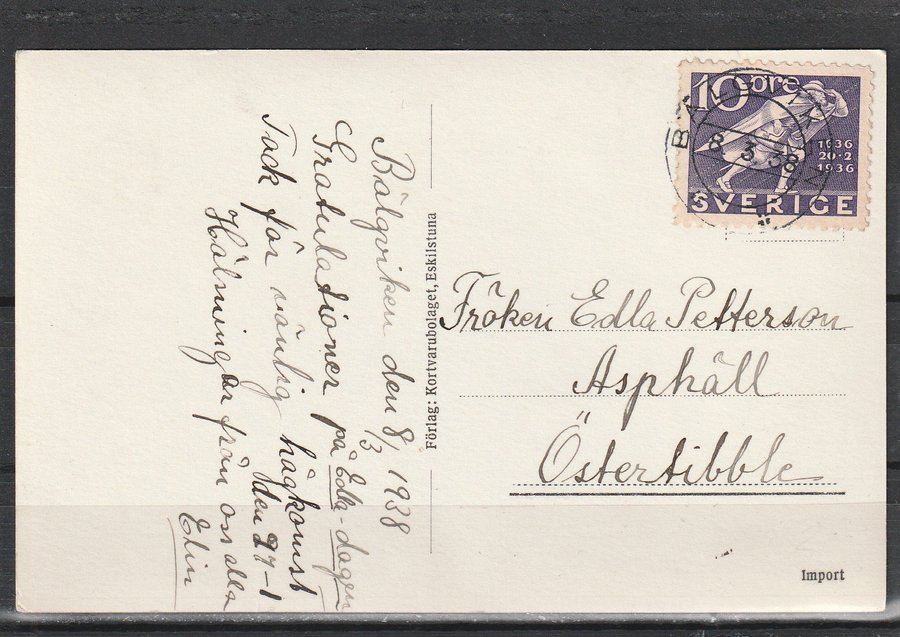 Bälgviken den 8/3 1938
Gratulationer på Edla-dagen
Tack för vänlig hågkomst
den 27-1
Hälsningar från oss alla
Elin
Förlag: Kortvarubolaget, Eskilstuna
10 öre
1636
20·2
1936
SVERIGE
BÄLGVIKEN
8 3 38
Fröken Edla Petterson
Asphäll
Östertibble
Import